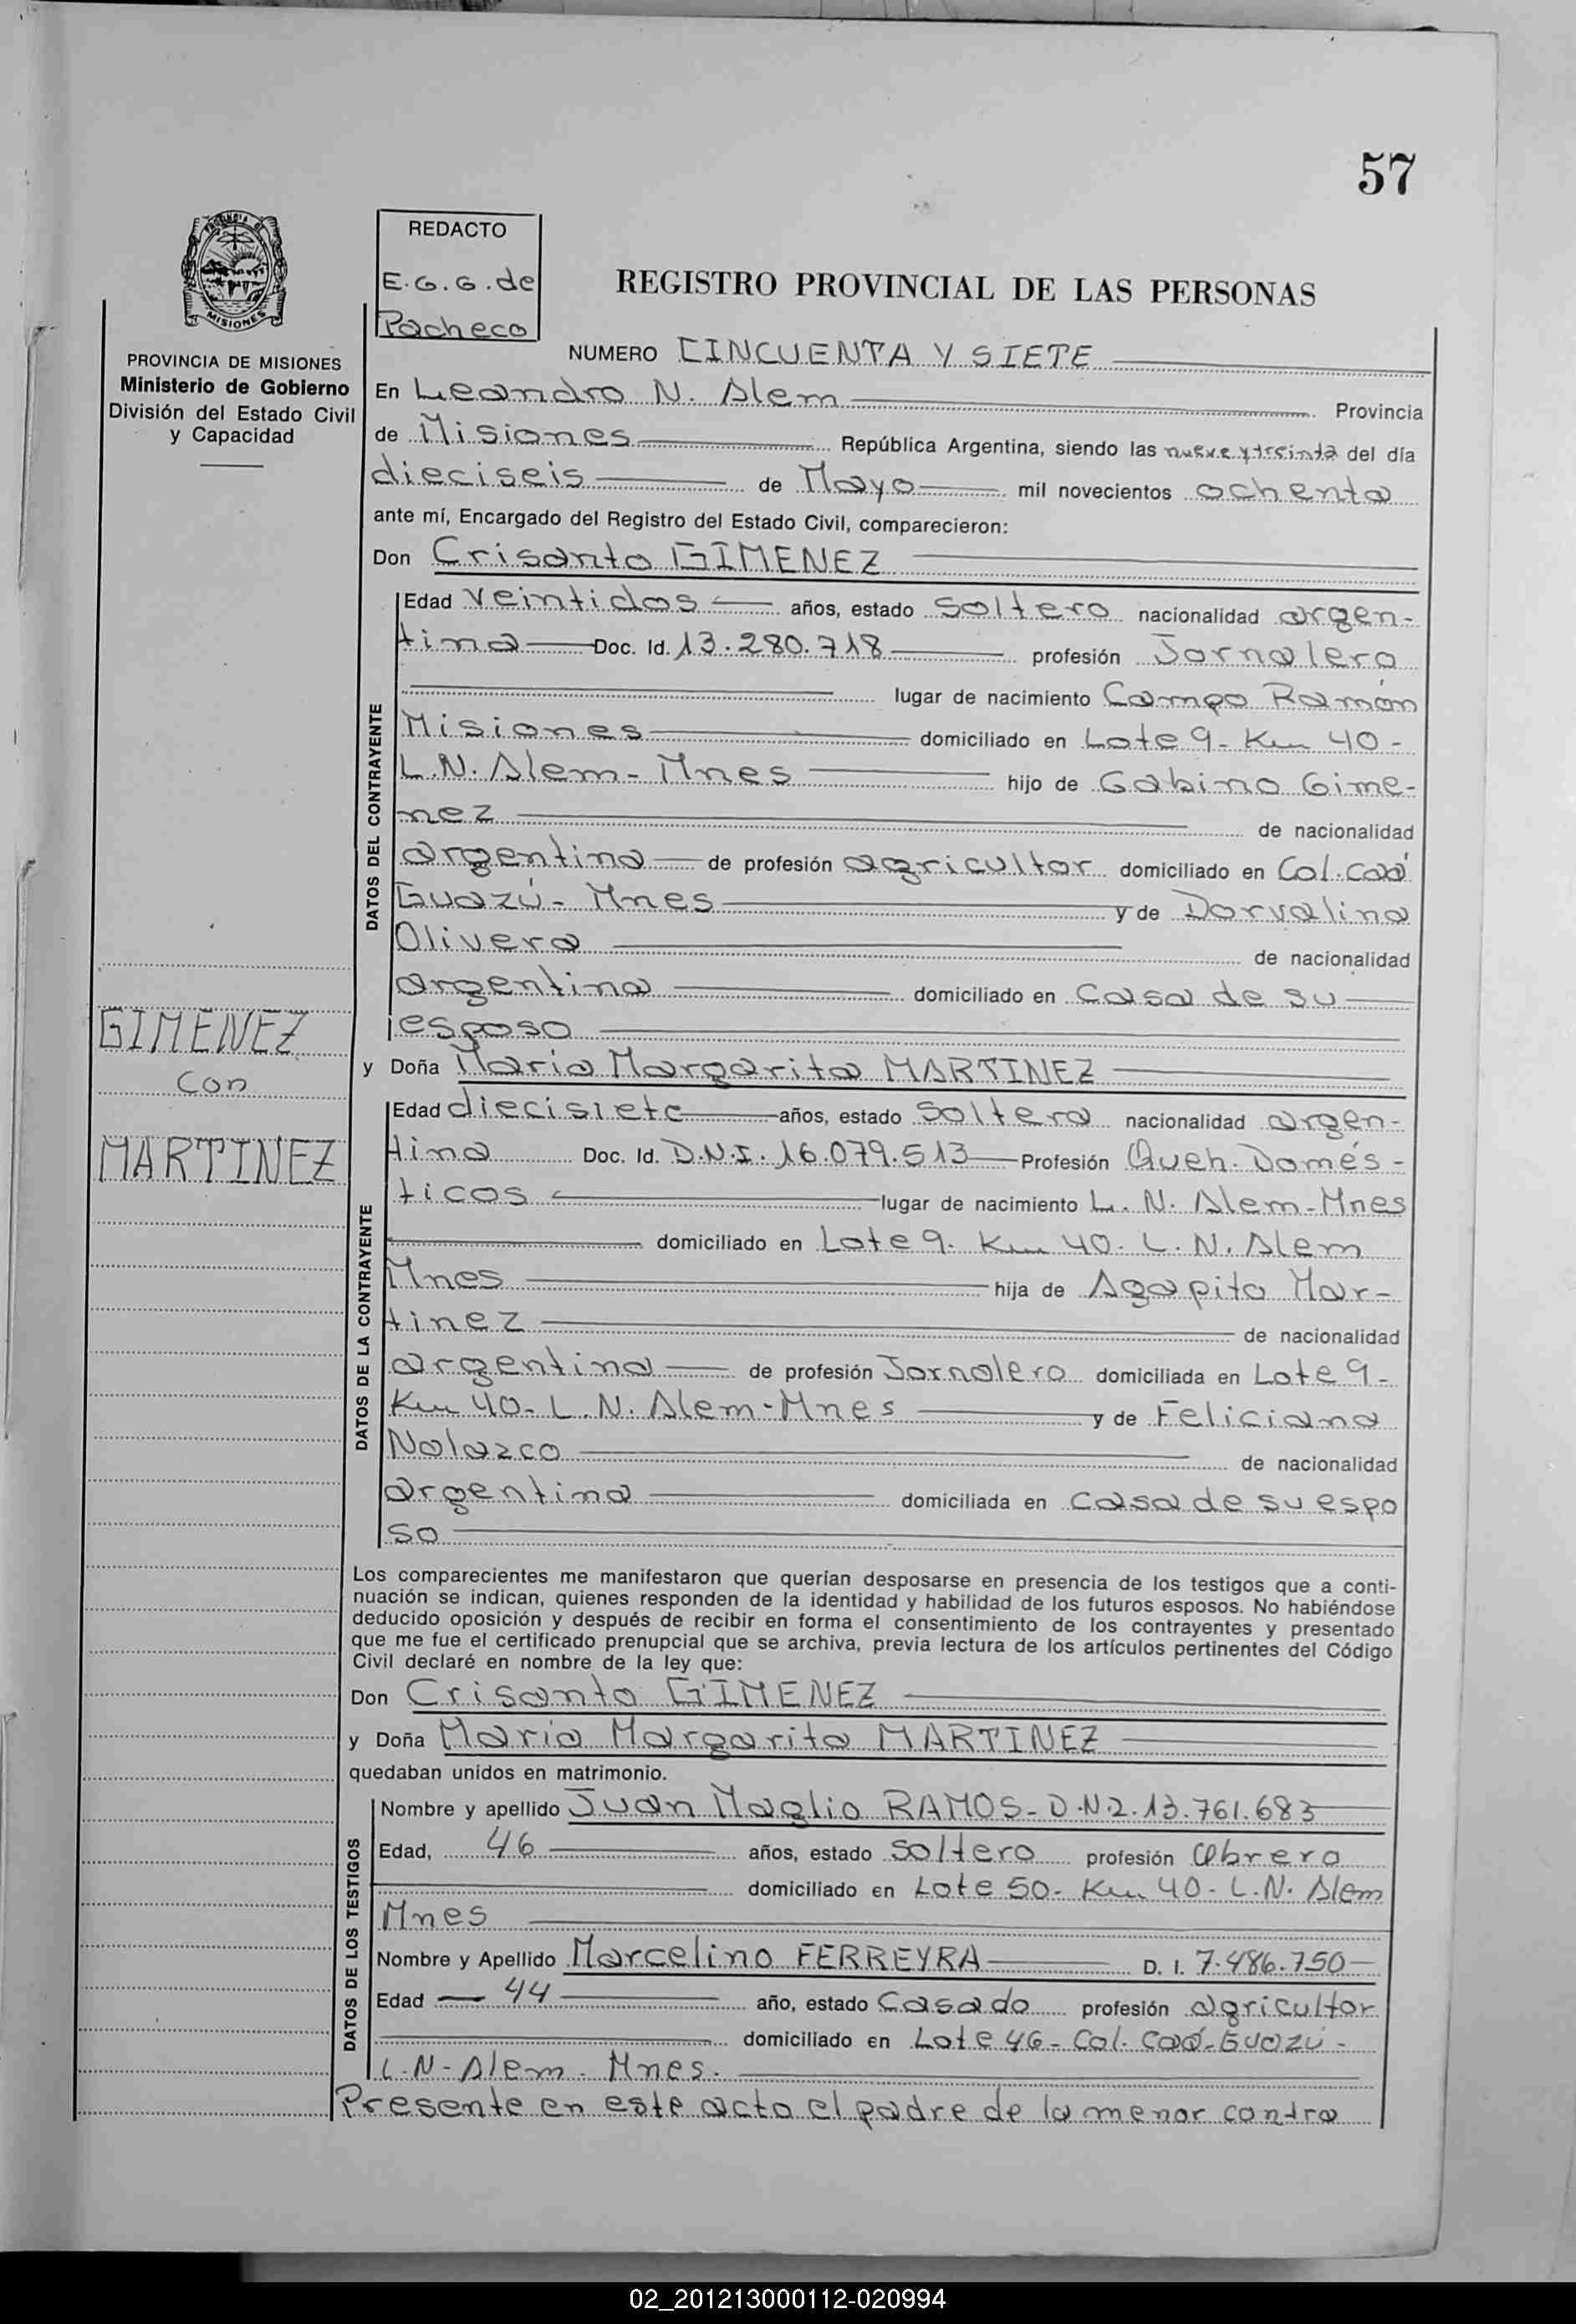 57
PROVINCIA DE
MISIONES
REDACTO
E.G.G. de
Pacheco
REGISTRO PROVINCIAL DE LAS PERSONAS
PROVINCIA DE MISIONES
Ministerio de Gobierno
División del Estado Civil
y Capacidad
NUMERO CINCUENTA Y SIETE
En Leandro N. Alem Provincia
de Misiones República Argentina, siendo las nueve y treinta del día
dieciseis de Mayo mil novecientos ochenta
ante mí, Encargado del Registro del Estado Civil, comparecieron:
Don Crisanto GIMENEZ
DATOS DEL CONTRAYENTE
Edad veintidos años, estado Soltero nacionalidad argen-
tina Doc. Id. 13.280.718 profesión Jornalero
lugar de nacimiento Campo Ramón
Misiones domiciliado en Lote 9- Km 40-
L.N. Alem- Mnes hijo de Gabino Gime-
nez de nacionalidad
argentina de profesión agricultor domiciliado en Col. Caá
Guazú- Mnes y de Dorvalina
Olivera de nacionalidad
argentina domiciliado en Casa de su
esposo
GIMENEZ
con
MARTINEZ
y Doña Maria Margarita MARTINEZ
DATOS DE LA CONTRAYENTE
Edad diecisiete años, estado Soltera nacionalidad argen-
tina Doc. Id. D.N.I. 16.079.513 Profesión Queh. Domés-
ticos lugar de nacimiento L. N. Alem-Mnes
domiciliado en Lote 9. Km 40. L. N. Alem
Mnes hija de Agapito Mar-
tinez de nacionalidad
argentina de profesión Jornalero domiciliada en Lote 9-
Km 40- L. N. Alem-Mnes y de Feliciana
Nolazco de nacionalidad
argentina domiciliada en casa de su espo
so
Los comparecientes me manifestaron que querían desposarse en presencia de los testigos que a conti-
nuación se indican, quienes responden de la identidad y habilidad de los futuros esposos. No habiéndose
deducido oposición y después de recibir en forma el consentimiento de los contrayentes y presentado
que me fue el certificado prenupcial que se archiva, previa lectura de los artículos pertinentes del Código
Civil declaré en nombre de la ley que:
Don Crisanto GIMENEZ
y Doña Maria Margarita MARTINEZ
quedaban unidos en matrimonio.
DATOS DE LOS TESTIGOS
Nombre y apellido Juan Maglio RAMOS- D.N.2.13.761.683
Edad, 46 años, estado soltero profesión Obrero
domiciliado en Lote 50- Km 40- L.N. Alem
Mnes
Nombre y Apellido Marcelino FERREYRA D. I. 7.486.750
Edad 44 año, estado Casado profesión agricultor
domiciliado en Lote 46- Col. Caá-Guazú-
L.N- Alem. Mnes.
Presente en este acto el padre de la menor contra
02_201213000112-020994